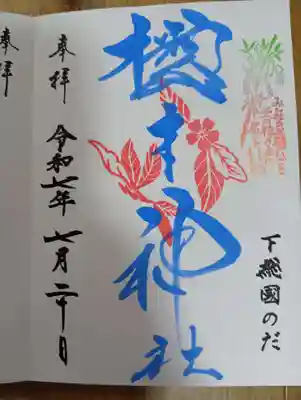 下総國のだ
櫻木神社
奉拝
令和七年七月二十日
奉拝